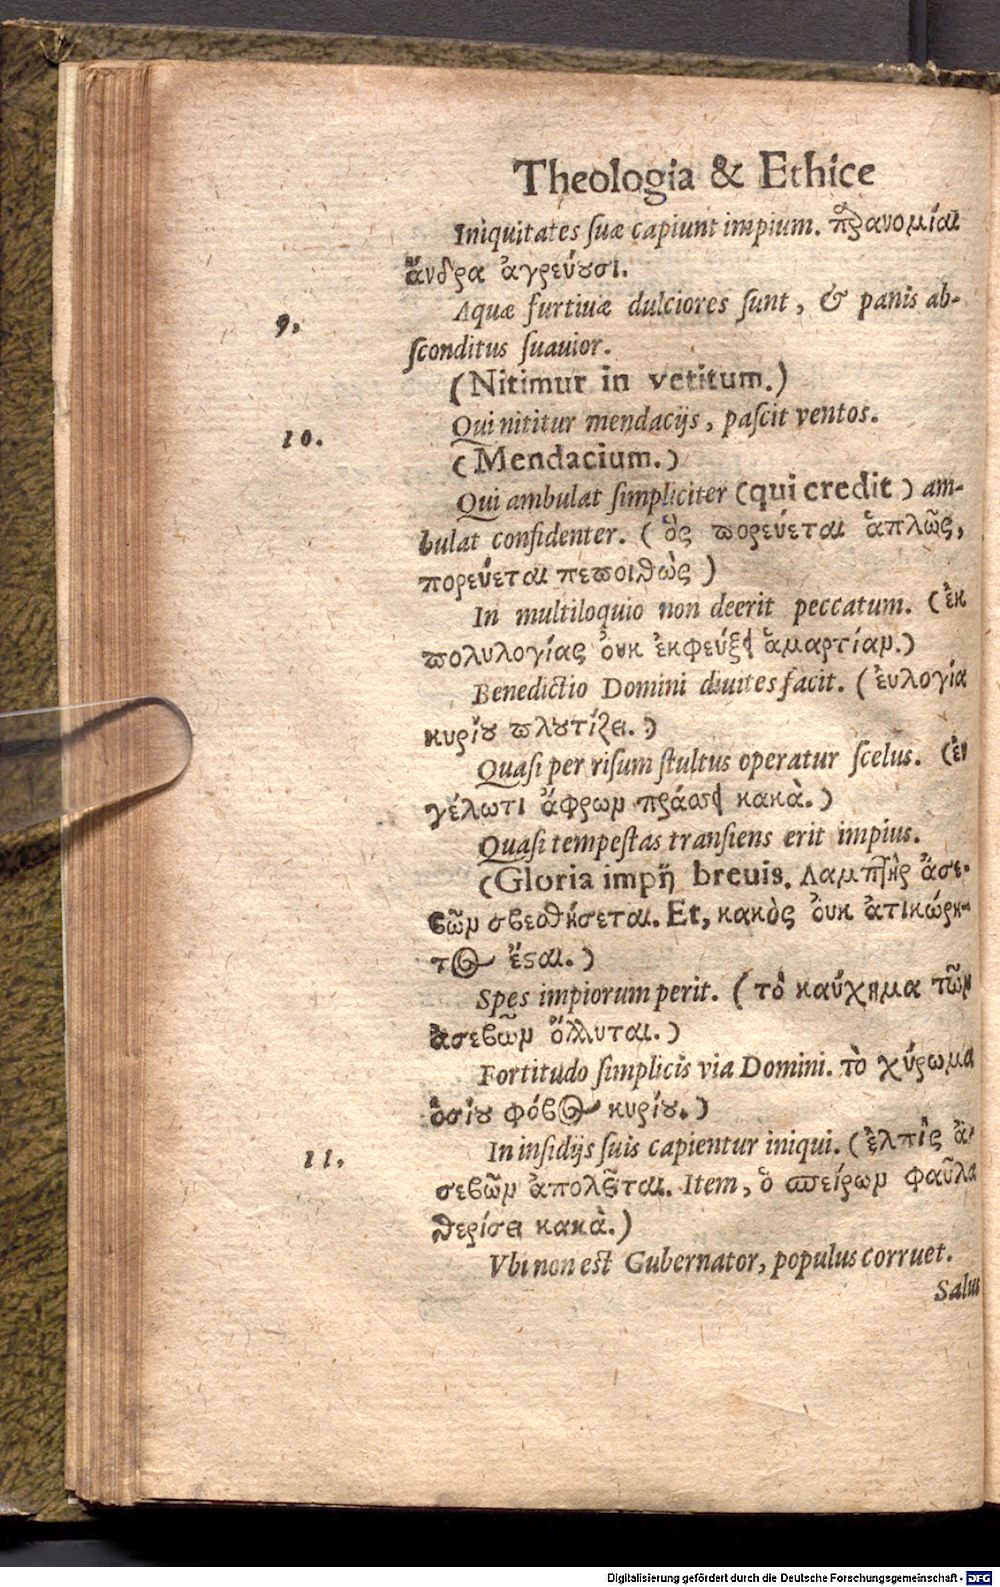 Theologia & Ethice
Iniquitates suæ capiunt impium. παρανομίαι
ἄνδρα ἀγρεύουσι.
9. Aquæ furtiuæ dulciores sunt, & panis ab-
sconditus suauior.
(Nitimur in vetitum.)
10. Qui nititur mendacijs, pascit ventos.
(Mendacium.)
Qui ambulat simpliciter (qui credit) am-
bulat confidenter. (ὃς πορεύεται ἁπλῶς,
πορεύεται πεποιθὼς)
In multiloquio non deerit peccatum. (ἐκ
πολυλογίας ὀυκ ἐκφεύξῃ ἁμαρτίαν.)
Benedictio Domini diuites facit. (ἐυλογία
κυρίου πλουτίζει.)
Quasi per risum stultus operatur scelus. (ἐν
γέλωτι ἄφρων πράσσει κακὰ.)
Quasi tempestas transiens erit impius.
(Gloria impij breuis. Λαμπτὴρ ἀσε-
βῶν σβεσθήσεται. Et, κακὸς ὀυκ ἀτιμώρη-
τος ἔσαι.)
Spes impiorum perit. (τὸ καύχημα τῶν
ἀσεβῶν ὄλλυται.)
Fortitudo simplicis via Domini. τὸ χύρωμα
ὁσίου φόβος κυρίου.)
11. In insidijs suis capientur iniqui. (ἐλπὶς ἀ-
σεβῶν ἀπολεῖται. Item, ὁ σπείρων φαῦλα
θερίσει κακὰ.)
Vbi non est Gubernator, populus corruet.
Salus
Digitalisierung gefördert durch die Deutsche Forschungsgemeinschaft - DFG